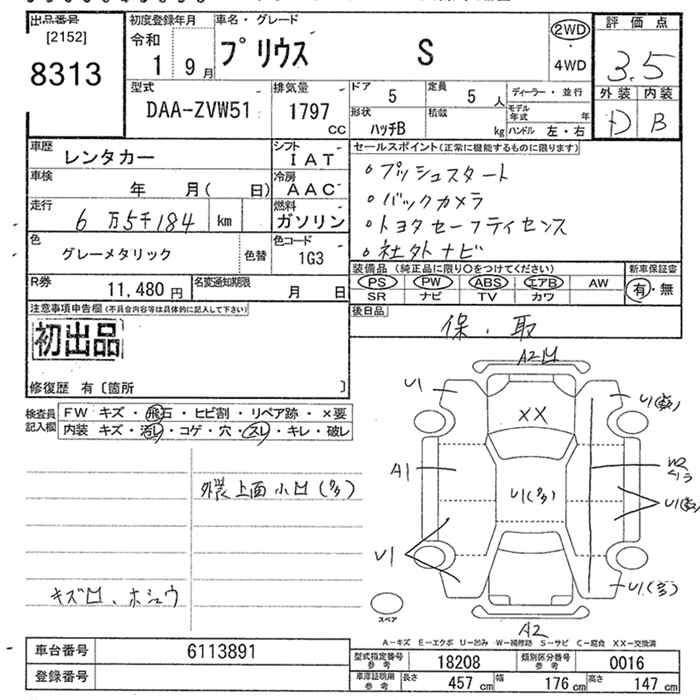 出品番号
[2152]
8313
初度登録年月
令和
1 9 月
車名・グレード
プリウス S
2WD
・
4WD
評価点
3.5
外装 内装
D B
型式
DAA-ZVW51
排気量
1797
CC
ドア
5
定員
5 人
ディーラー・並行
形状
ハッチB
積載
kg
モデル
年式 年
ハンドル 左・右
車歴
レンタカー
シフト
IAT
車検
年 月( 日)
冷房
AAC
走行
6 万5千184 km
燃料
ガソリン
色
グレーメタリック
色替
色コード
1G3
セールスポイント(正常に機能するものに限ります)
・プッシュスタート
・バックカメラ
・トヨタセーフティセンス
・社外ナビ
装備品 (純正品に限り○をつけてください)
新車保証書
PS PW ABS エアB AW
SR ナビ TV カワ
有・無
R券
11,480 円
名変通知期限
月 日
後日品
保・取
注意事項申告欄(不具合内容等は具体的に記入して下さい)
初出品
修復歴 有〔箇所 〕
検査員
記入欄
FW キズ・飛石・ヒビ割・リペア跡・×要
内装 キズ・汚レ・コゲ・穴・スレ・キレ・破レ
外装上面小凹(多)
キズ凹、ホシュウ
A2凹
U1
XX
U1(多)
A1
W2
U1(多)
U1(多)
U1
U1(多)
スペア
A2
A-キズ E-エクボ U-凹み W-補修跡 S-サビ C-腐食 XX-交換済
車台番号
6113891
登録番号
型式指定番号
参考
18208
類別区分番号
参考
0016
車庫証明用
参考
長さ
457 cm
幅
176 cm
高さ
147 cm